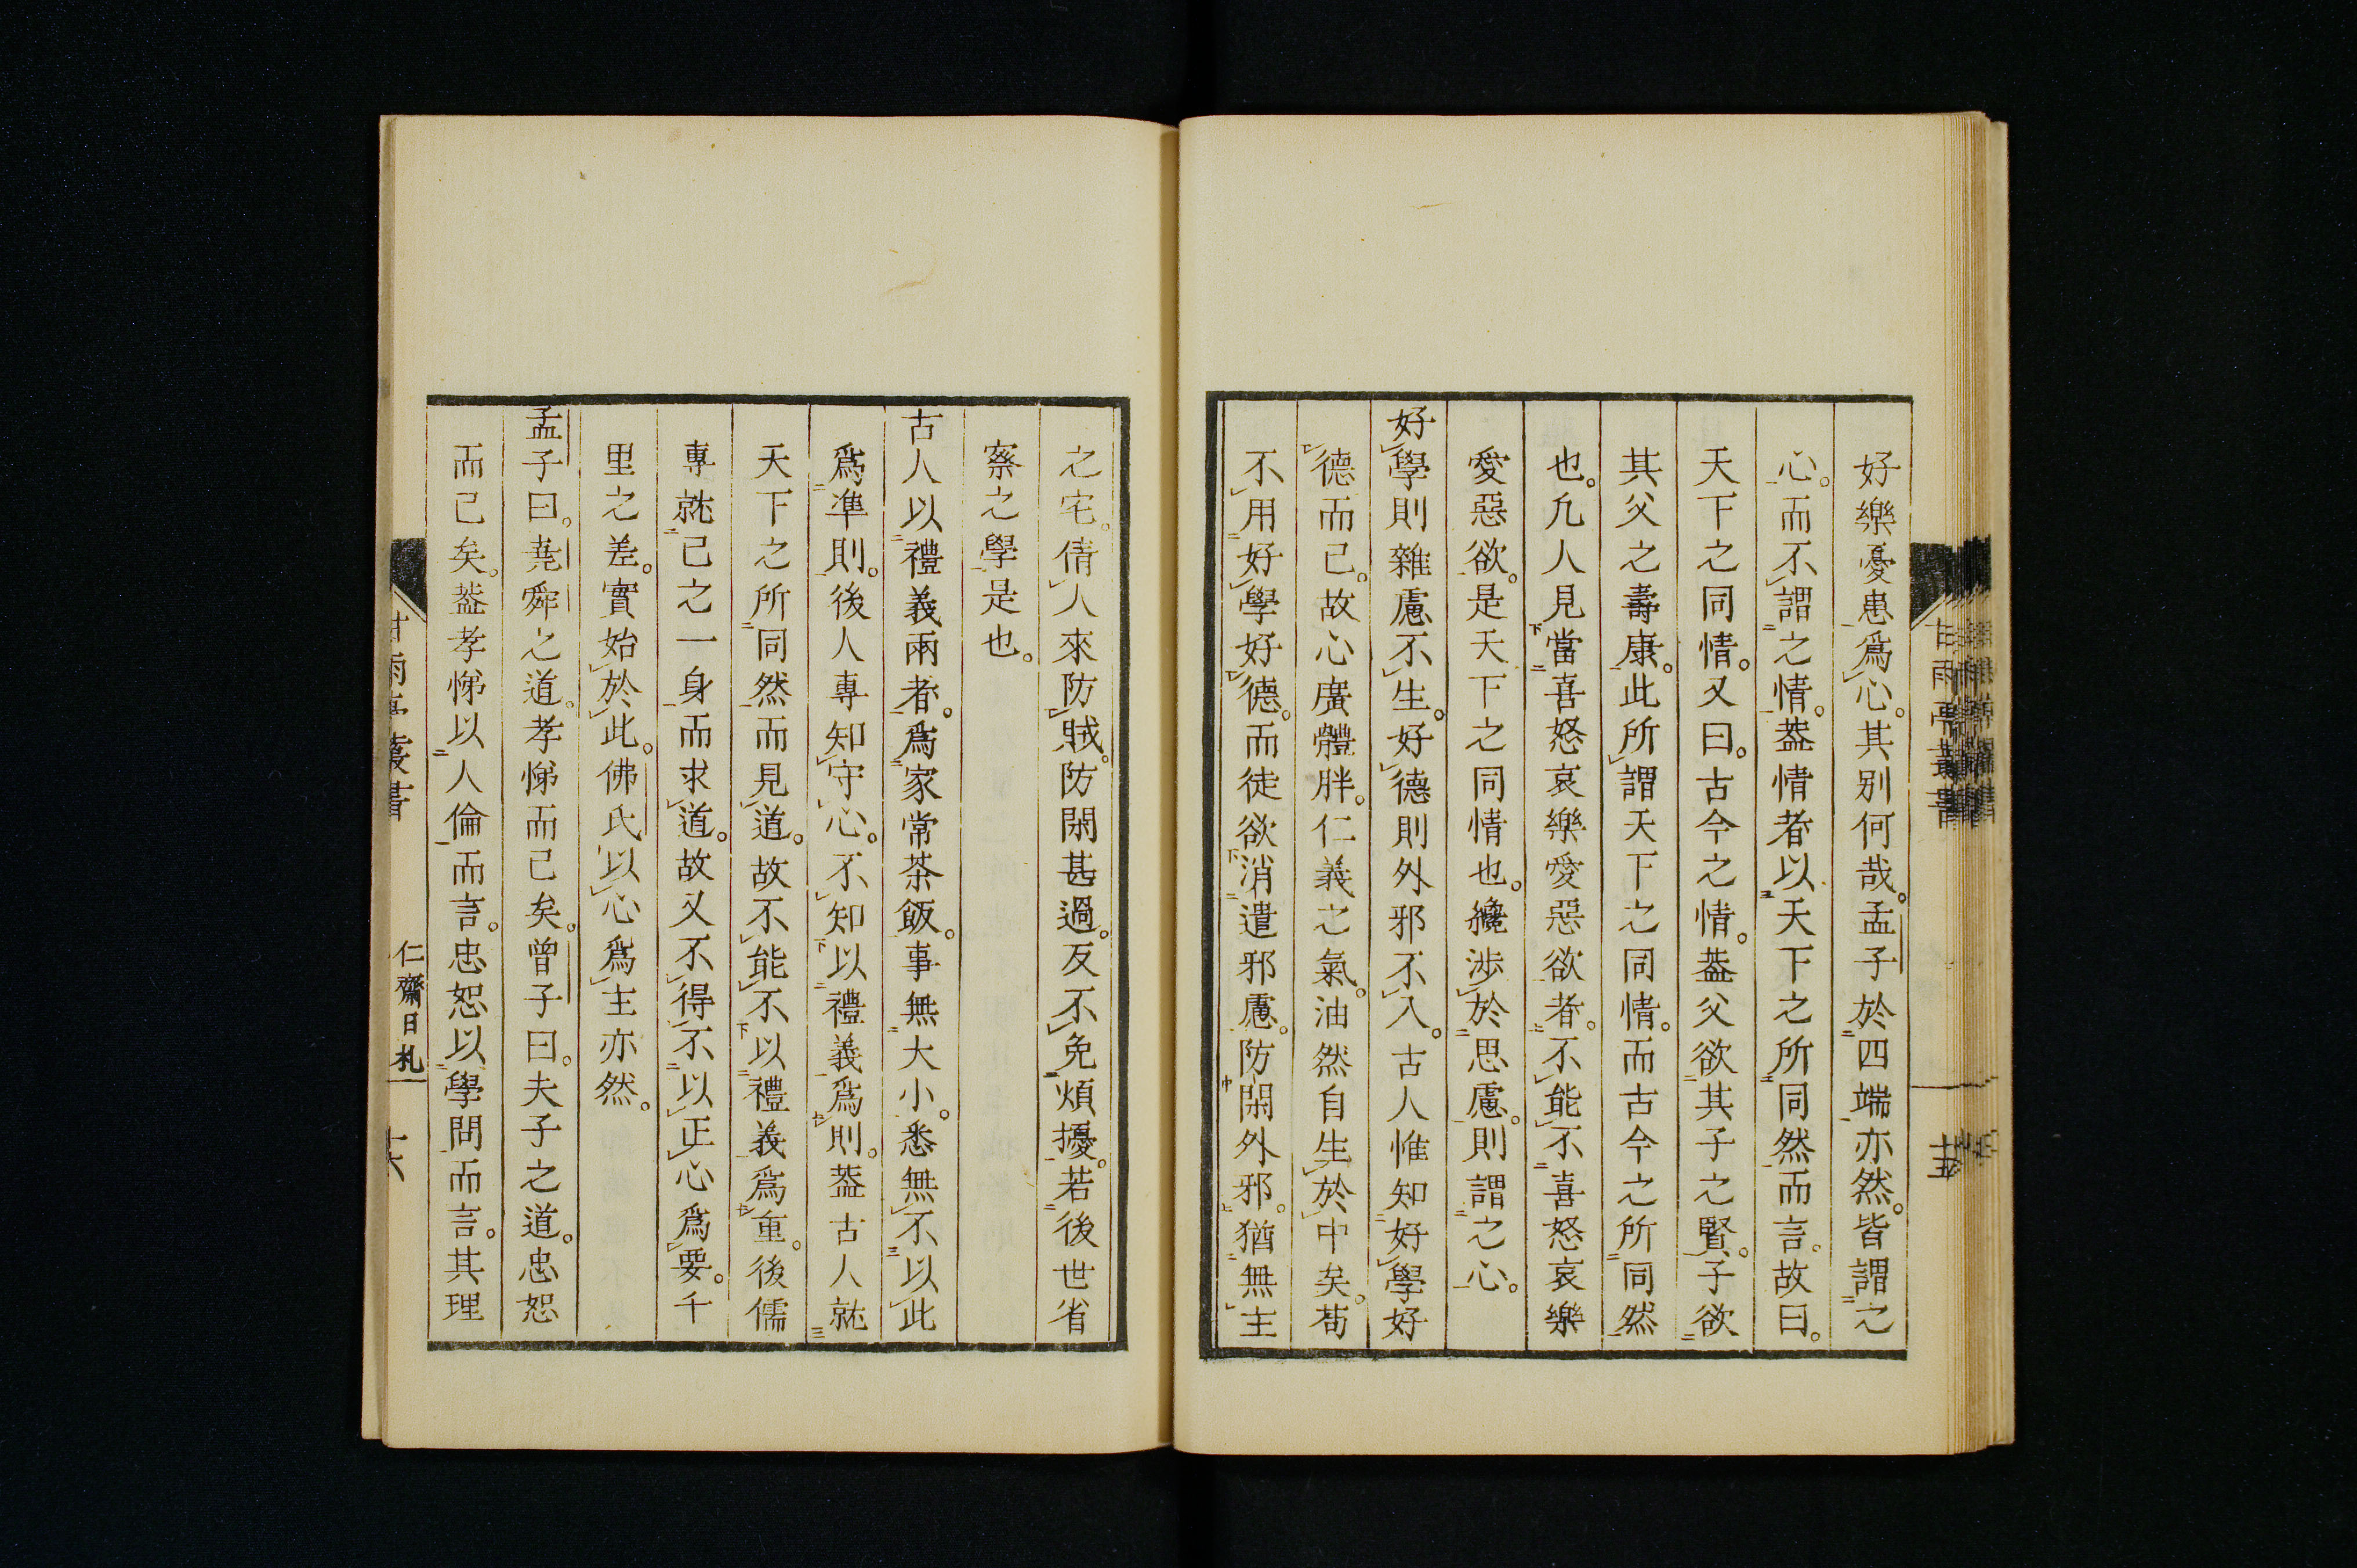 好樂憂患爲心。其别何哉。孟子於四端亦然。皆謂之
心。而不謂之情。葢情者以天下之所同然而言。故曰。
天下之同情。又曰。古今之情。葢父欲其子之賢。子欲
其父之壽康。此所謂天下之同情。而古今之所同然
也。凢人見當喜怒哀樂愛惡欲者。不能不喜怒哀樂
愛惡欲。是天下之同情也。纔渉於思慮。則謂之心。
好學則雜慮不生。好德則外邪不入。古人惟知好學好
德而已。故心廣體胖。仁義之氣。油然自生於中矣。苟
不用好學好德。而徒欲消遣邪慮。防閑外邪。猶無主
之宅。倩人來防賊。防閑甚過。反不免煩擾。若後世省
察之學是也。
古人以禮義兩者。爲家常茶飯。事無大小。悉無不以此
爲準則。後人專知守心。不知以禮義爲則。葢古人就
天下之所同然而見道。故不能不以禮義爲重。後儒
專就己之一身而求道。故又不得不以正心爲要。千
里之差。實始於此。佛氏以心爲主亦然。
孟子曰。堯舜之道。孝悌而已矣。曾子曰。夫子之道。忠恕
而已矣。葢孝悌以人倫而言。忠恕以學問而言。其理
甘雨亭叢書
仁齋日札
十六
甘雨亭叢書
十五